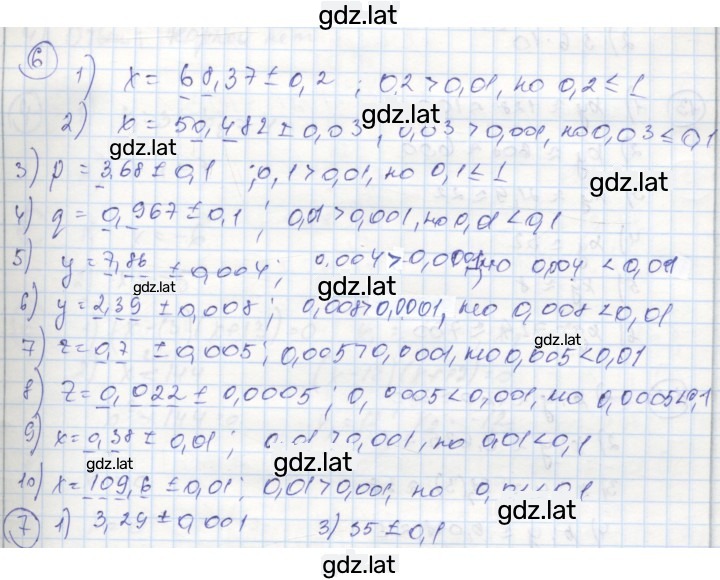 gdz.lat
6
1) x = 68,37 ± 0,2 ; 0,2 > 0,01, но 0,2 ≤ 1
2) x = 50,482 ± 0,03, 0,03 > 0,001, но 0,03 ≤ 0,1
gdz.lat
gdz.lat
3) p = 3,68 ± 0,1 ; 0,1 > 0,01, но 0,1 ≤ 1
gdz.lat
4) q = 0,967 ± 0,1 ; 0,01 > 0,001, но 0,01 < 0,1
5) y = 7,86 ± 0,004 ; 0,004 > 0,0001, но 0,004 < 0,01
gdz.lat
6) y = 2,39 ± 0,008 ; 0,008 > 0,0001, но 0,008 < 0,01
gdz.lat
7) z = 0,7 ± 0,005 ; 0,005 > 0,0001, но 0,005 < 0,01
8) z = 0,022 ± 0,0005 ; 0,0005 < 0,001, но 0,0005 < 0,1
9) x = 0,38 ± 0,01 ; > 0,001, но 0,01 < 0,1
gdz.lat
gdz.lat
10) x = 109,6 ± 0,01 ; 0,01 > 0,001, но
gdz.lat
7 1) 3,29 ± 0,001 3) 35 ± 0,1
gdz.lat